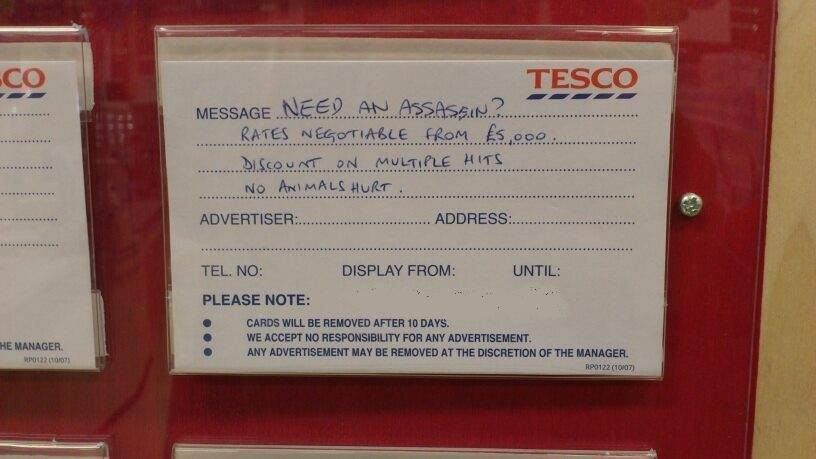 TESCO
MESSAGE NEED AN ASSASSIN?
RATES NEGOTIABLE FROM £5,000.
DISCOUNT ON MULTIPLE HITS
NO ANIMALS HURT.
ADVERTISER: ADDRESS:
TEL. NO: DISPLAY FROM: UNTIL:
PLEASE NOTE:
● CARDS WILL BE REMOVED AFTER 10 DAYS.
● WE ACCEPT NO RESPONSIBILITY FOR ANY ADVERTISEMENT.
● ANY ADVERTISEMENT MAY BE REMOVED AT THE DISCRETION OF THE MANAGER.
RP0122 (10/07)
SCO
HE MANAGER.
RP0122 (10/07)